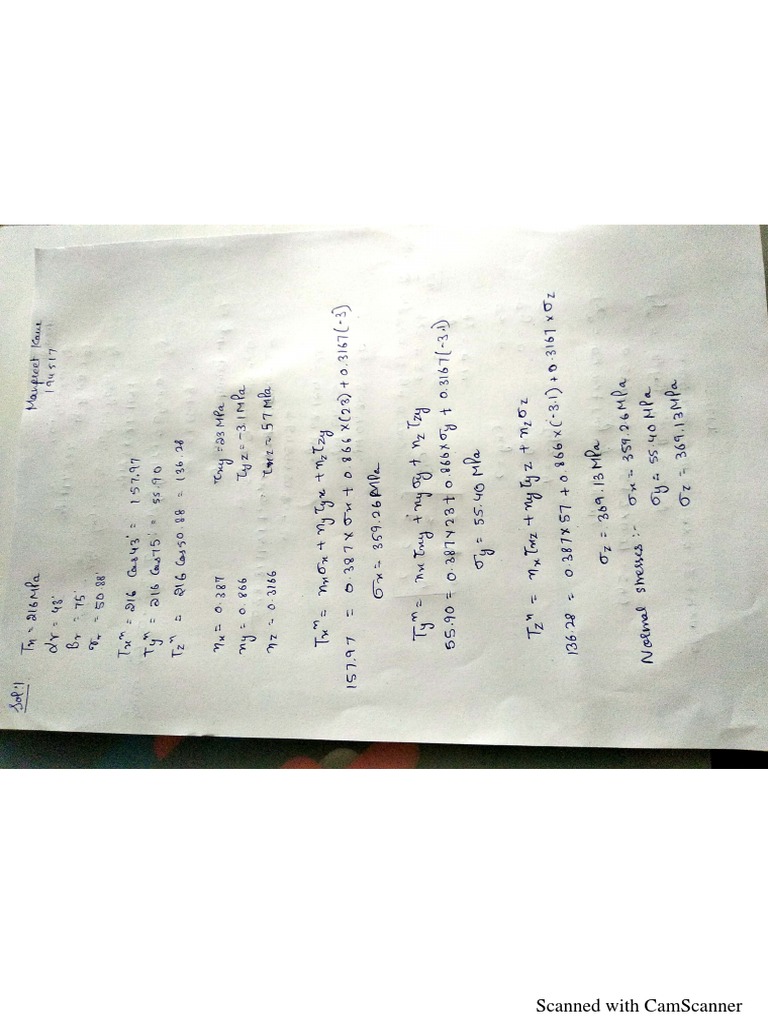 Manpreet Kaur
194517
Sol:1
Tn = 216 MPa
αr = 43'
Br = 75'
σr = 50.88'
Txⁿ = 216 Cos43' = 157.97
Tyⁿ = 216 Cos75' = 55.90
Tzⁿ = 216 Cos50.88 = 136.28
nx = 0.387 τxy = 23 MPa
ny = 0.866 τyz = -3.1 MPa
nz = 0.3166 τxz = 57 MPa
Txⁿ = nxσx + nyτyx + nzτzy
157.97 = 0.387×σx + 0.866×(23) + 0.3167(-3)
σx = 359.26 MPa
Tyⁿ = nxτxy + nyσy + nzτzy
55.90 = 0.387×23 + 0.866×σy + 0.3167(-3.1)
σy = 55.40 MPa
Tzⁿ = nxτxz + nyτyz + nzσz
136.28 = 0.387×57 + 0.866×(-3.1) + 0.3167×σz
σz = 369.13 MPa
Normal stresses :- σx = 359.26 MPa
σy = 55.40 MPa
σz = 369.13 MPa
Scanned with CamScanner